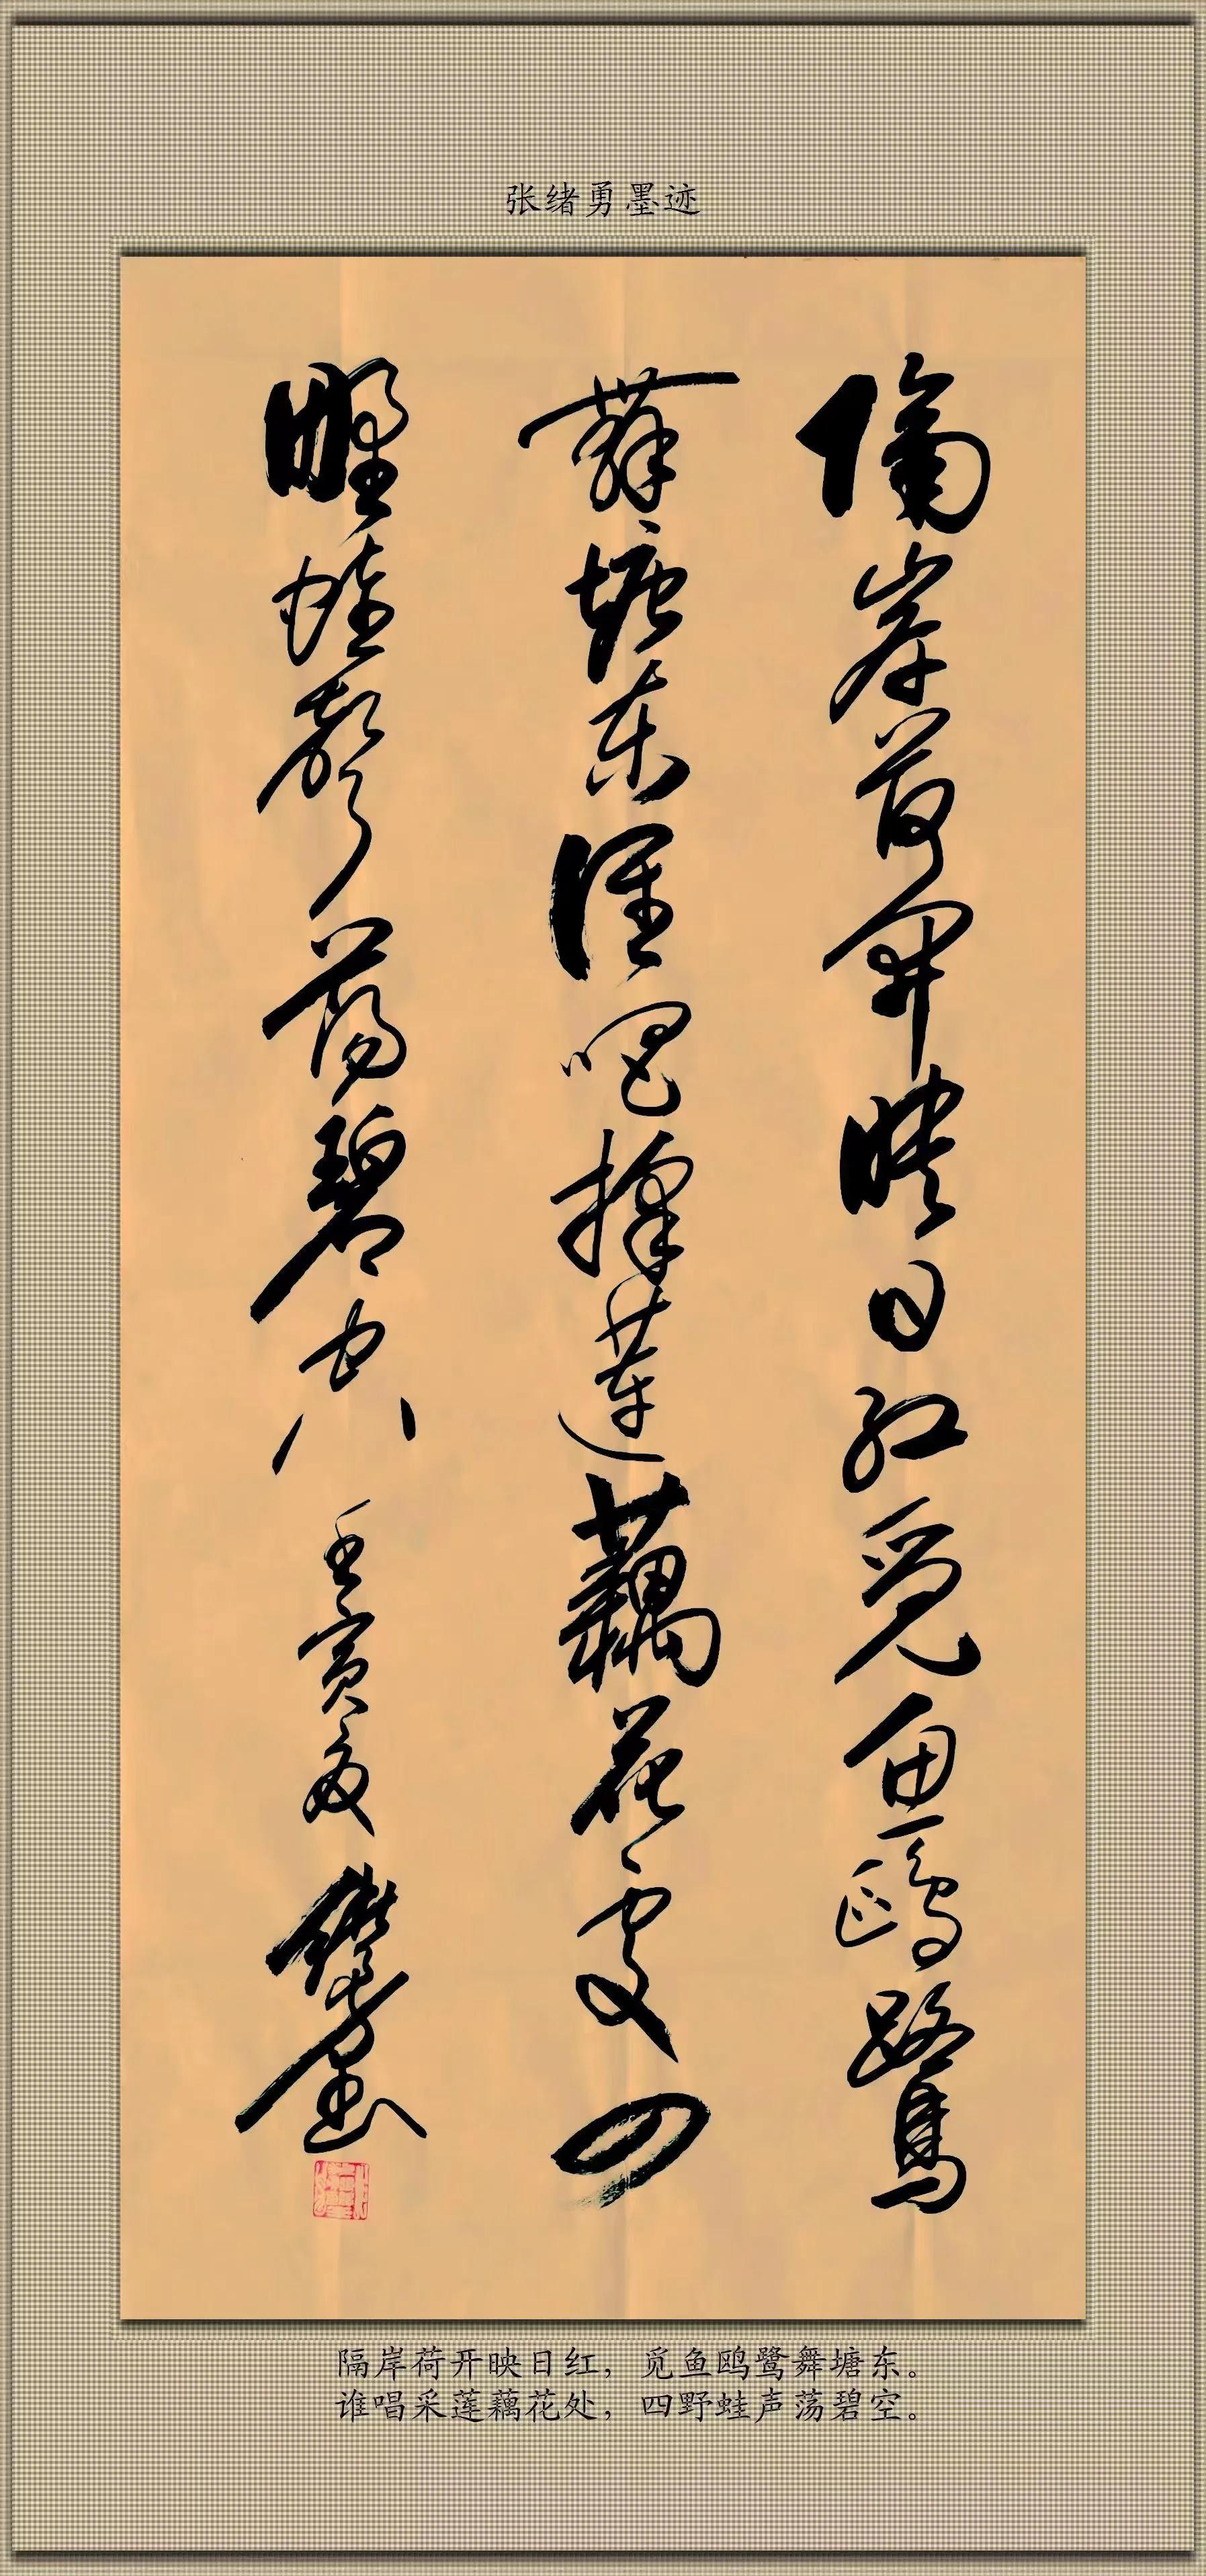 张绪勇墨迹
隔岸荷開映日红觅鱼鸥鹭
舞塘东谁唱採莲藕花处四
野蛙声荡碧空 壬寅夏
隔岸荷开映日红，觅鱼鸥鹭舞塘东。
谁唱采莲藕花处，四野蛙声荡碧空。